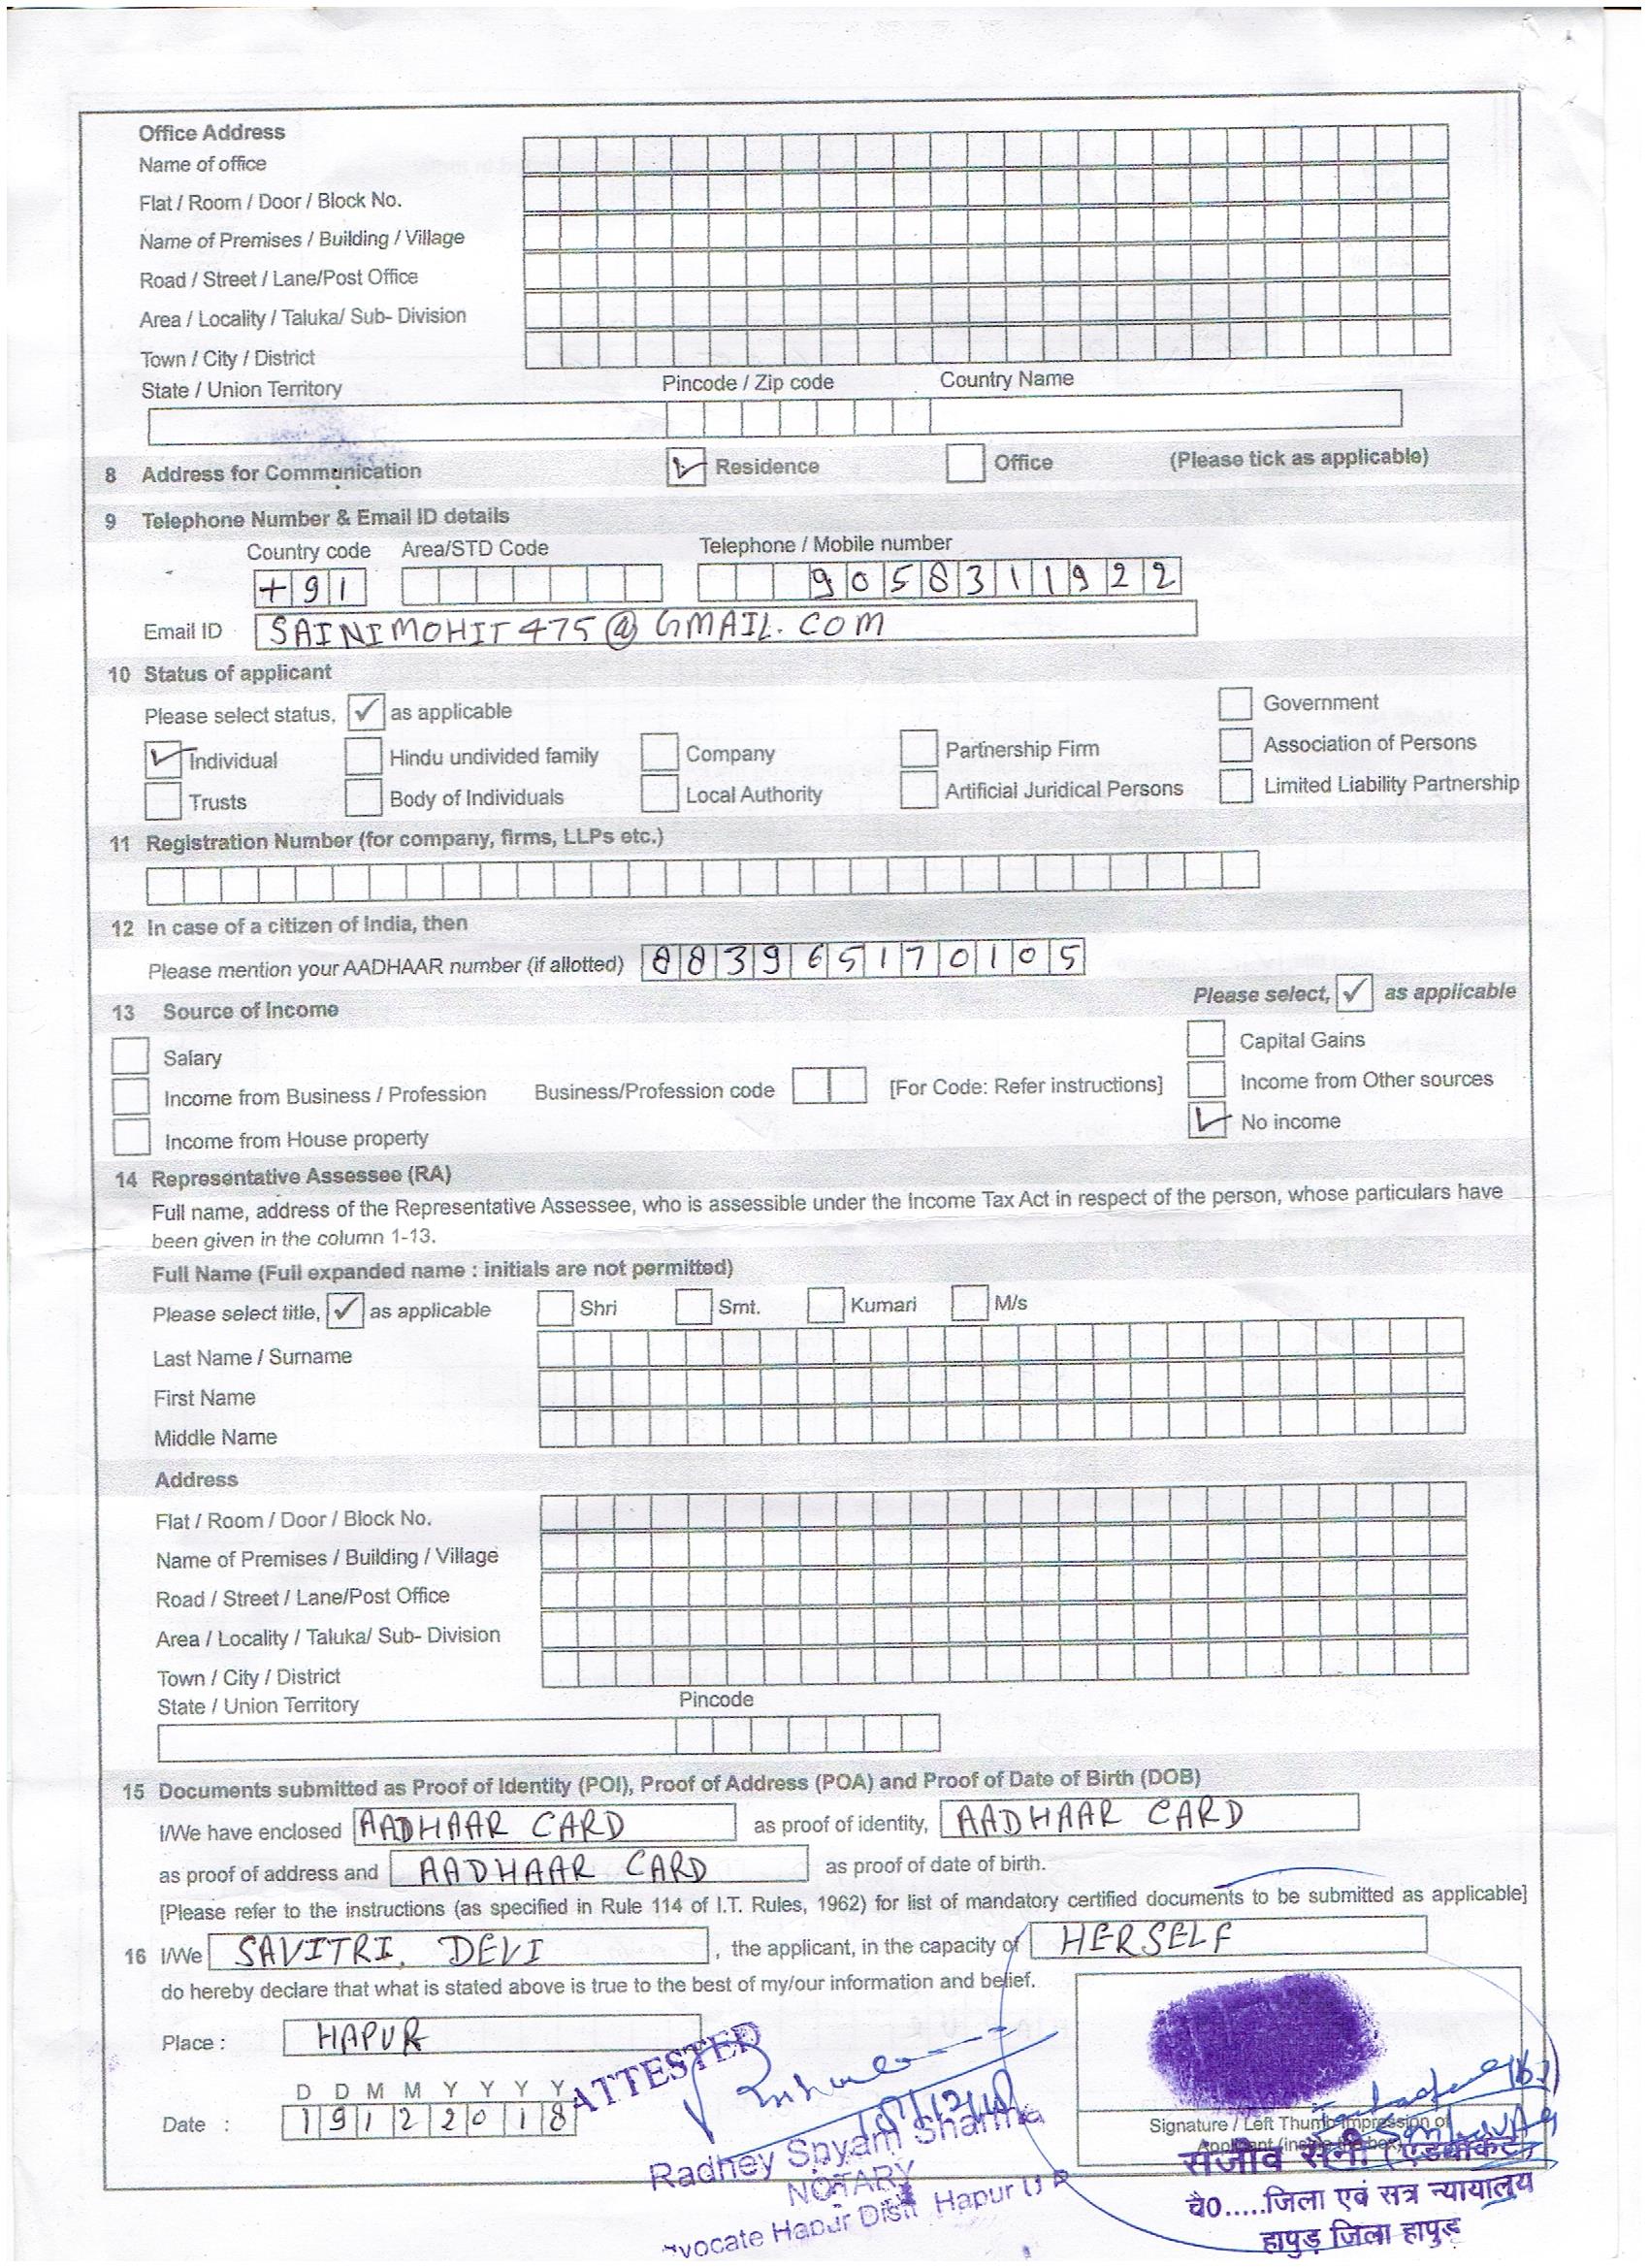 Office Address
Name of office
Flat / Room / Door / Block No.
Name of Premises / Building / Village
Road / Street / Lane/Post Office
Area / Locality / Taluka/ Sub- Division
Town / City / District
State / Union Territory Pincode / Zip code Country Name
8 Address for Communication Residence Office (Please tick as applicable)
9 Telephone Number & Email ID details
Country code Area/STD Code Telephone / Mobile number
+91 9058311922
Email ID SAINIMOHIT475@GMAIL.COM
10 Status of applicant
Please select status, ✓ as applicable Government
Individual Hindu undivided family Company Partnership Firm Association of Persons
Trusts Body of Individuals Local Authority Artificial Juridical Persons Limited Liability Partnership
11 Registration Number (for company, firms, LLPs etc.)
12 In case of a citizen of India, then
Please mention your AADHAAR number (if allotted) 883965170105
13 Source of Income Please select, ✓ as applicable
Salary Capital Gains
Income from Business / Profession Business/Profession code [For Code: Refer instructions] Income from Other sources
Income from House property No income
14 Representative Assessee (RA)
Full name, address of the Representative Assessee, who is assessible under the Income Tax Act in respect of the person, whose particulars have
been given in the column 1-13.
Full Name (Full expanded name : initials are not permitted)
Please select title, ✓ as applicable Shri Smt. Kumari M/s
Last Name / Surname
First Name
Middle Name
Address
Flat / Room / Door / Block No.
Name of Premises / Building / Village
Road / Street / Lane/Post Office
Area / Locality / Taluka/ Sub- Division
Town / City / District
State / Union Territory Pincode
15 Documents submitted as Proof of Identity (POI), Proof of Address (POA) and Proof of Date of Birth (DOB)
I/We have enclosed AADHAAR CARD as proof of identity, AADHAAR CARD
as proof of address and AADHAAR CARD as proof of date of birth.
[Please refer to the instructions (as specified in Rule 114 of I.T. Rules, 1962) for list of mandatory certified documents to be submitted as applicable]
16 I/We SAVITRI. DEVI , the applicant, in the capacity of HERSELF
do hereby declare that what is stated above is true to the best of my/our information and belief.
Place : HAPUR
D D M M Y Y Y Y
Date : 19122018
ATTESTED
Radhey Shyam Sharma
NOTARY
Hapur Distt Hapur U P
Signature / Left Thumb Impression of
Applicant (inside the box)
संजीव सैनी (एडवोकेट)
चै0.....जिला एवं सत्र न्यायालय
हापुड़ जिला हापुड़